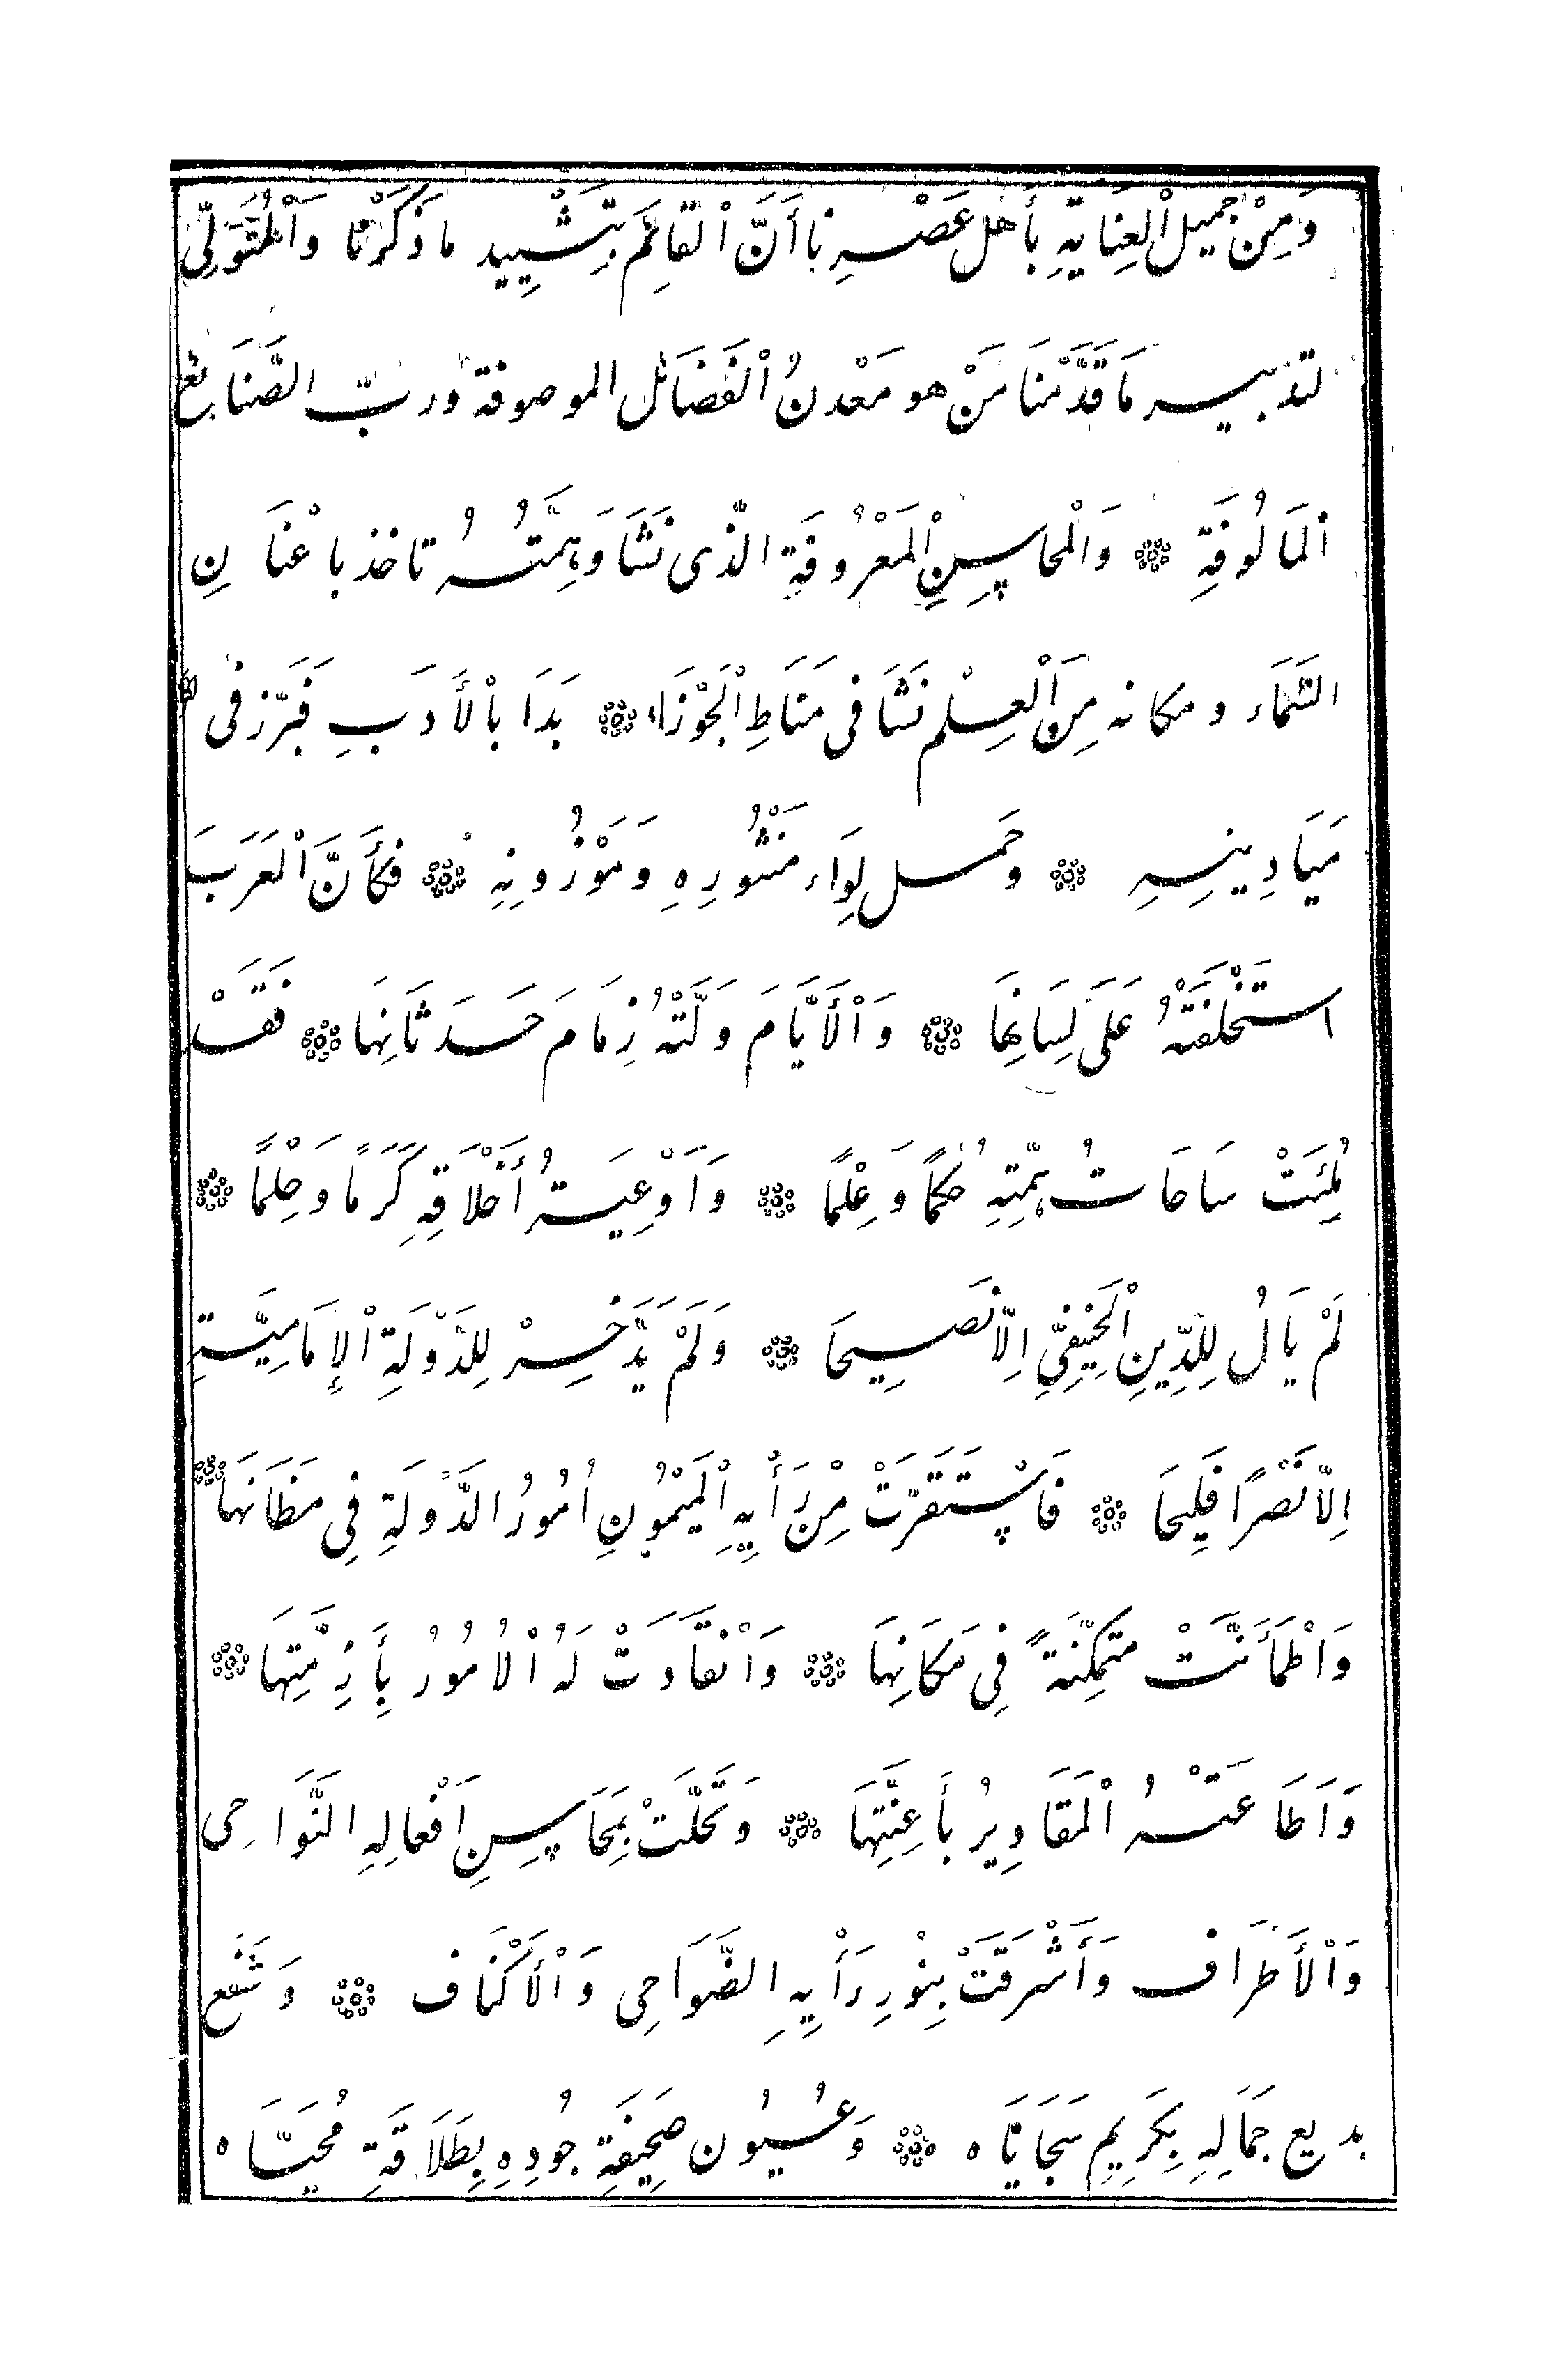 وَمِنْ جَمِيلِ الْعِنَايَةِ بِأَهْلِ عَصْرِنَا أَنَّ الْقَائِمَ بِتَشْيِيدِ مَا ذَكَرْنَا وَالْمُتَوَلِّي
لتدبير مَا قَدَّمْنَا مَنْ هو مَعْدنُ الْفَضَائل الموصوفة وربّ الصَّنَايع
الْمَالُوفَةِ ۞ وَالْمحاسِنِ الْمَعْرُوفَةِ الّذى نَشَا وَهِمَّتُهُ تاخذ باعْنَانِ
السَّمَاء ومكانه مِنَ الْعِلْمِ نَشَا فى مَنَاطِ الْجَوْزَاء ۞ بَدَا بالْأَدَبِ فَبَرَّز فى
مَيَادِينِهِ ۞ وحَمل لِوَاء مَنْثُورِهِ وَمَوْزُونِهِ ۞ فَكَأَنَّ الْعَرَبَ
استَخْلَفَتْهُ عَلَى لِسَانِهَا ۞ وَالْأَيَّامَ وَلَّتْهُ زِمَامَ حَدَثَانِهَا ۞ فَقَدْ
مُلِئَتْ سَاحَاتُ هِمَّتِهِ حُكْمًا وَعِلْمًا ۞ وَاَوْعِيَةُ أَخْلَاقِهِ كَرَمًا وَحِلْمًا ۞
لَمْ يَالُ لِلدِّينِ الْحَنِيفِيِّ اِلّا نَصِيحَا ۞ وَلَمْ يَدَّخِرْ لِلدَّوْلَةِ الْإِمَامِيَّةِ
اِلّا نَصْرًا فَلِيحَا ۞ فَاسْتَقَرَّتْ مِنْ رَأْيِهِ الْمَيْمُونِ اُمُورُ الدَّوْلَةِ فِي مَظَانِهَا ۞
وَاطْمَأَنَّتْ متمكِّنَةً فِي مَكَانِهَا ۞ وَانْقَادَتْ لَهُ الْاُمُورُ بِأَزِمَّتِهَا ۞
وَاَطَاعَتْهُ الْمَقَادِيرُ بأَعِنَّتِهَا ۞ وَتَحَلَّتْ بِمَحَاسِنِ اَفْعَالِهِ النَّوَاحِى
وَالْأَطْرَاف وَأَشْرَقَتْ بِنُورِ رَأْيِهِ الضَّوَاحِى وَالْأَكْنَاف ۞ وَشَفَع
بديع جَمَالِهِ بِكَرِيمِ سَجَايَاه ۞ وَعُيُون صَحِيفَةِ جُودِهِ بِطَلَاقَةِ مُحَيَّاه